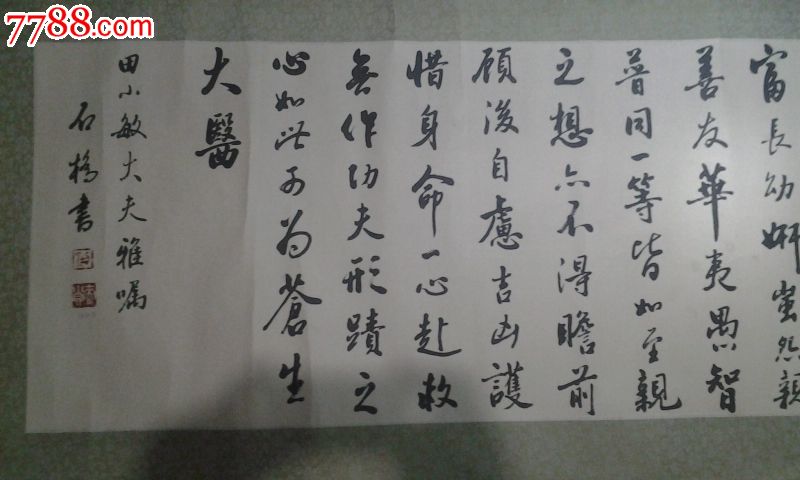 7788.com
富長幼妍蚩怨親
善友華夷愚智
普同一等皆如至親
之想亦不得瞻前
顧後自慮吉凶護
惜身命一心赴救
無作功夫形蹟之
心如此可為蒼生
大醫
田小敏大夫雅嘱
石橋書